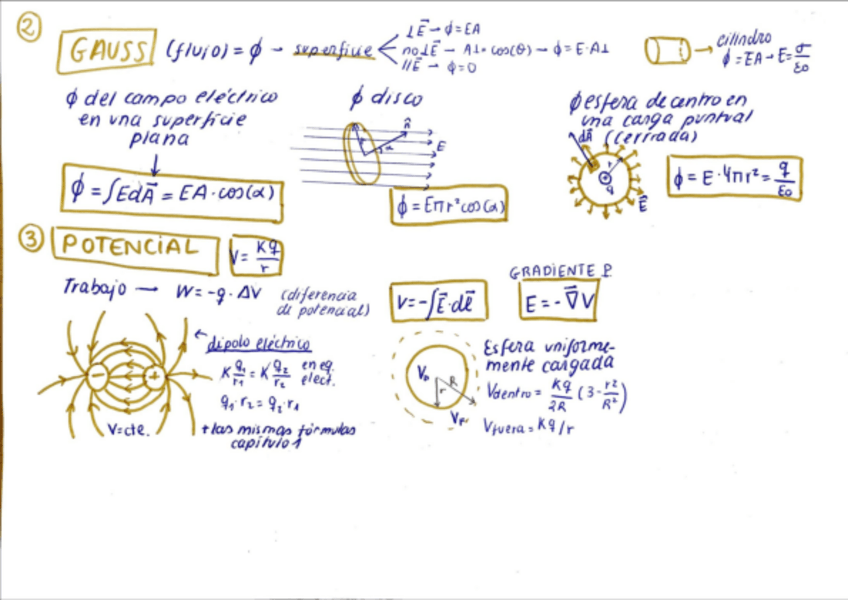 2
GAUSS (flujo) = ϕ → superficie
⊥E⃗ → ϕ=EA
no⊥E⃗ → A⊥ = cos(θ) → ϕ = E·A⊥
//E⃗ → ϕ=0
→ cilindro
ϕ = EA → E = σ/ε₀
ϕ del campo eléctrico
en una superficie
plana
ϕ = ∫EdA⃗ = EA · cos(α)
ϕ disco
n̂
α
E
ϕ = Eπr² cos(α)
ϕ esfera de centro en
una carga puntual
dA⃗ (cerrada)
r
+
q
E⃗
ϕ = E · 4πr² = q/ε₀
3
POTENCIAL
V = Kq/r
Trabajo → W = -q · ΔV (diferencia
de potencial)
V = -∫E⃗·dℓ⃗
GRADIENTE P.
E = -∇⃗V
← dipolo eléctrico
K q₁/r₁ = K q₂/r₂ en eq. elect.
q₁·r₂ = q₂·r₁
- +
V=cte.
+ las mismas fórmulas
capítulo 1
Vₚ
r
R
Vₚ
Esfera uniforme-
mente cargada
Vdentro = Kq/2R (3 - r²/R²)
Vfuera = Kq/r